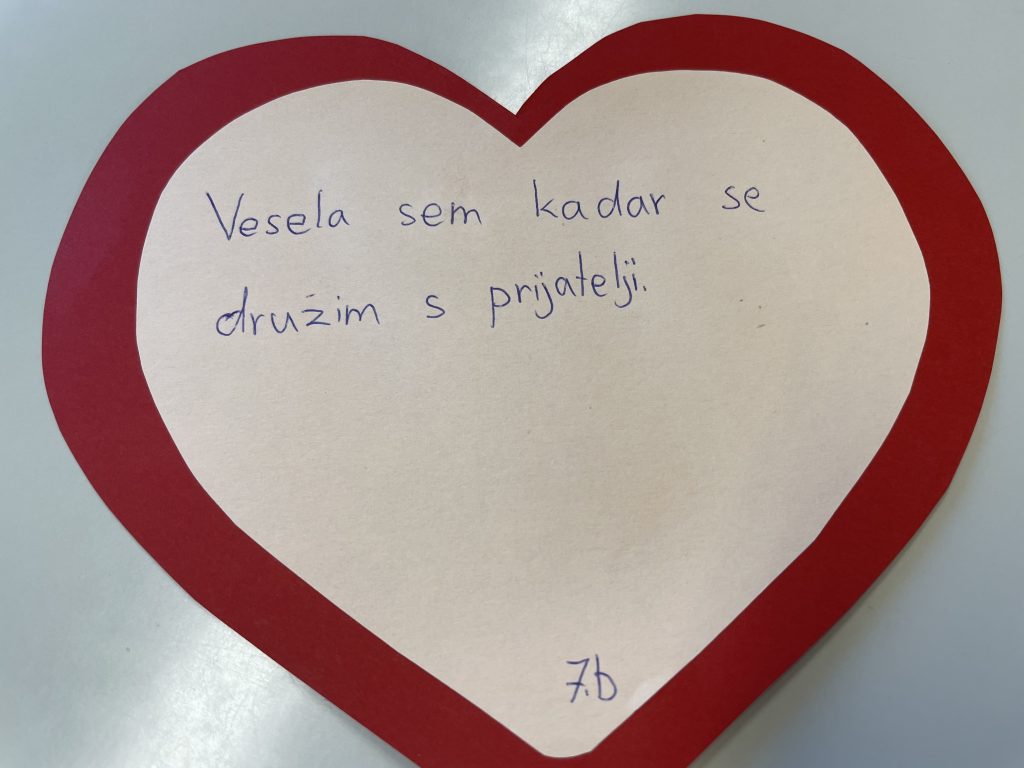 Vesela sem kadar se
družim s prijatelji.
7.b